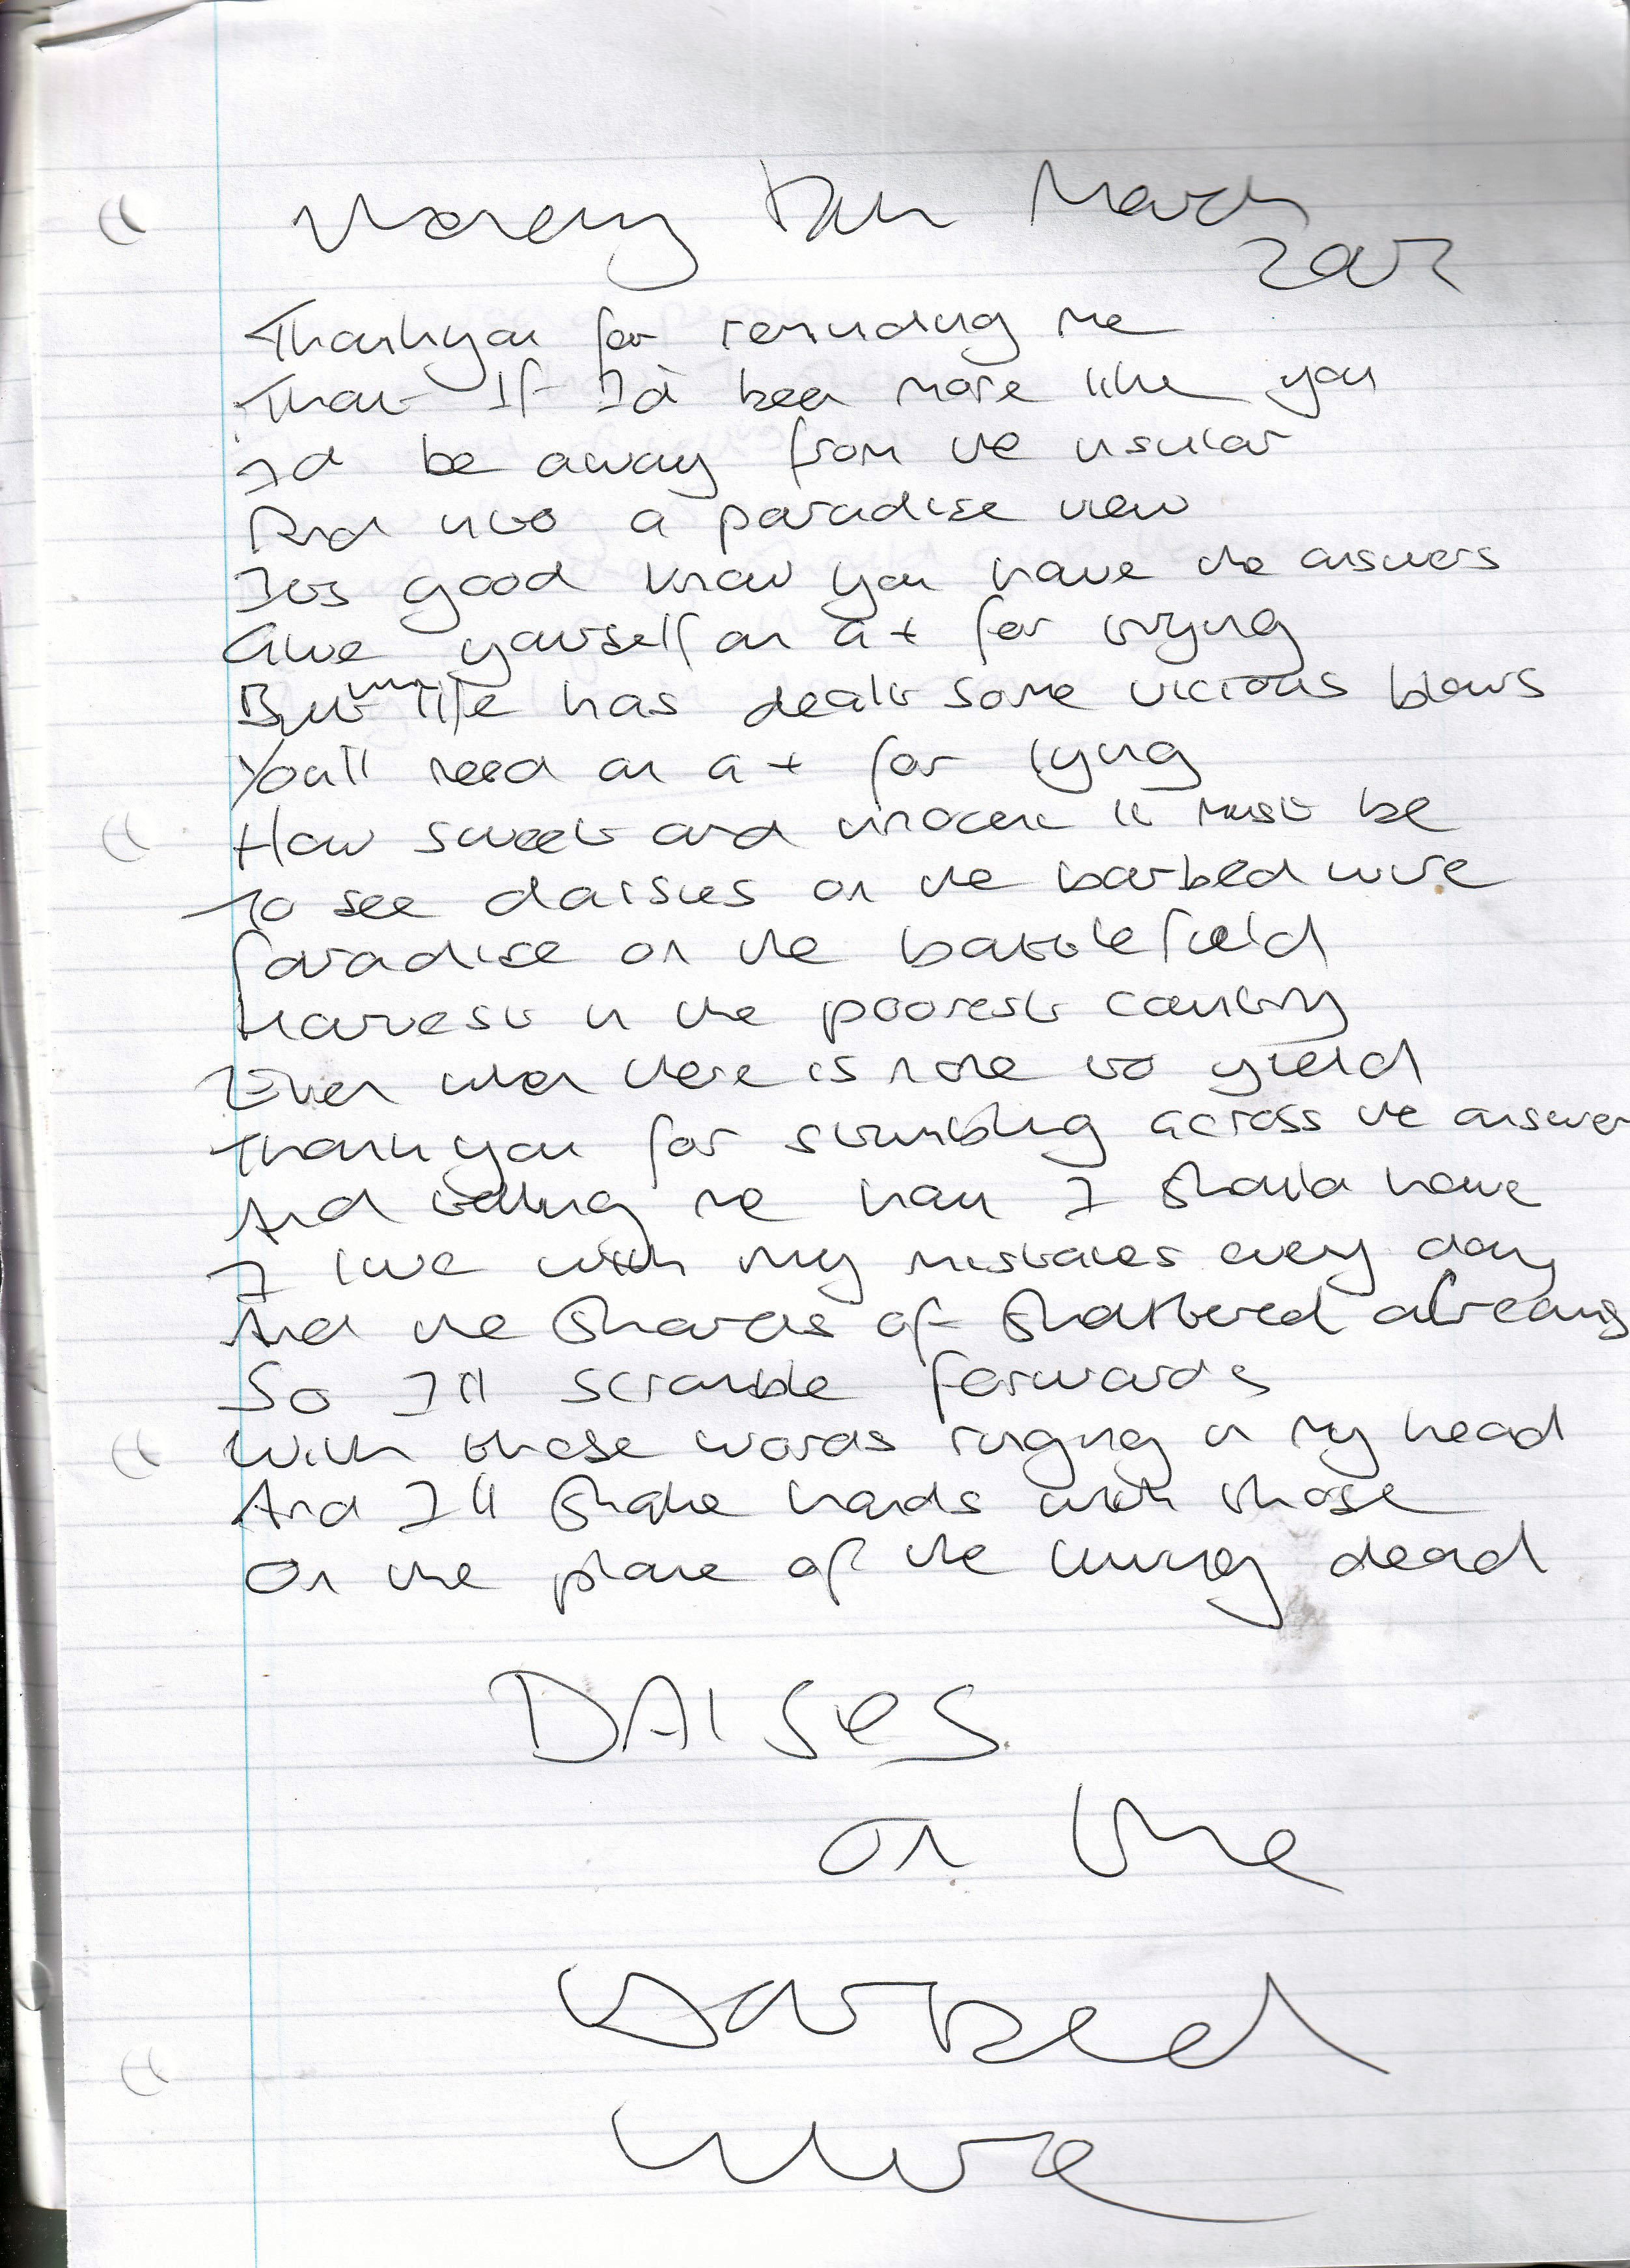 March
Thankyou for reminding me
That If I'd been more like you
I'd be away from the insular
And into a paradise view
Its good know you have the answers
Give yourself an a+ for trying
But when life has dealt some vicious blows
You'll need an a+ for lying
How sweet and innocent it must be
To see daisies on the barbed wire
Paradise on the battlefield
Harvest in the poorest country
Even when there is none to yield
Thankyou for stumbling across the answer
And telling me how I should have
I live with my mistakes every day
And the shards of shattered dreams
So I'll scramble forwards
With those words ringing in my head
And I'll shake hands with those
On the plane of the living dead
DAISES
on the
barbed
wire